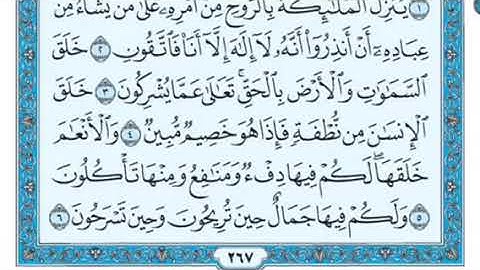 ١ يُنَزِّلُ ٱلْمَلَـٰٓئِكَةَ بِٱلرُّوحِ مِنْ أَمْرِهِۦ عَلَىٰ مَن يَشَآءُ مِنْ
عِبَادِهِۦٓ أَنْ أَنذِرُوٓا۟ أَنَّهُۥ لَآ إِلَـٰهَ إِلَّآ أَنَا۠ فَٱتَّقُونِ ٢ خَلَقَ
ٱلسَّمَـٰوَٰتِ وَٱلْأَرْضَ بِٱلْحَقِّ ۚ تَعَـٰلَىٰ عَمَّا يُشْرِكُونَ ٣ خَلَقَ
ٱلْإِنسَـٰنَ مِن نُّطْفَةٍ فَإِذَا هُوَ خَصِيمٌ مُّبِينٌ ٤ وَٱلْأَنْعَـٰمَ
خَلَقَهَا ۗ لَكُمْ فِيهَا دِفْءٌ وَمَنَـٰفِعُ وَمِنْهَا تَأْكُلُونَ
٥ وَلَكُمْ فِيهَا جَمَالٌ حِينَ تُرِيحُونَ وَحِينَ تَسْرَحُونَ ٦
٢٦٧